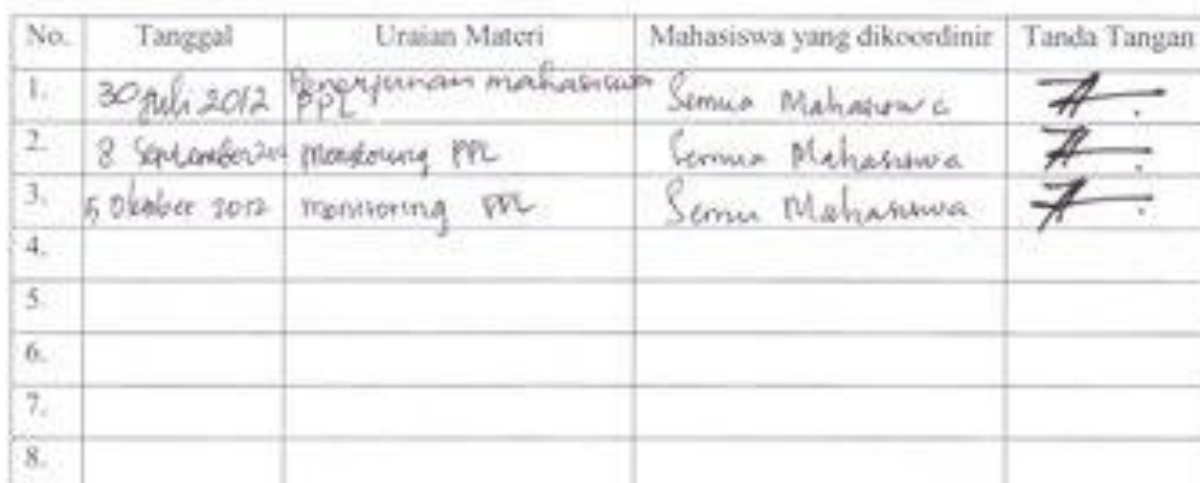 No. Tanggal Uraian Materi Mahasiswa yang dikoordinir Tanda Tangan
1. 30 Juli 2012 Penerjunan mahasiswa PPL Semua Mahasiswa
2. 8 September monitoring PPL Semua Mahasiswa
3. 5 Oktober 2012 monitoring PPL Semua Mahasiswa
4.
5.
6.
7.
8.